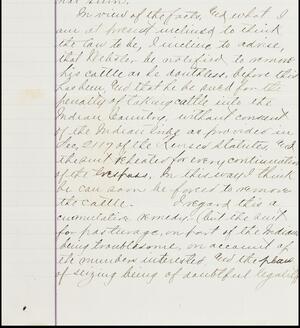 In view of the facts, and what I
am at present inclined to think
the law to be, I incline to advise,
that Webster be notified to remove
his cattle as he doubtless, before this
has been, and that he be sued for the
penalty of taking cattle into the
Indian Country, without consent
of the Indian tribe as provided in
Sec, 2117 of the Revised Statutes, and
the suit repeated for every continuation
of the trespass. In this way I think
he can soon be forced to remove
the cattle. I regard this a
cumulative remedy, but the suit
for pasturage, on part of the Indians
being troublesome, on account of
the numbers interested and the plan
of seizing being of doubtful legality